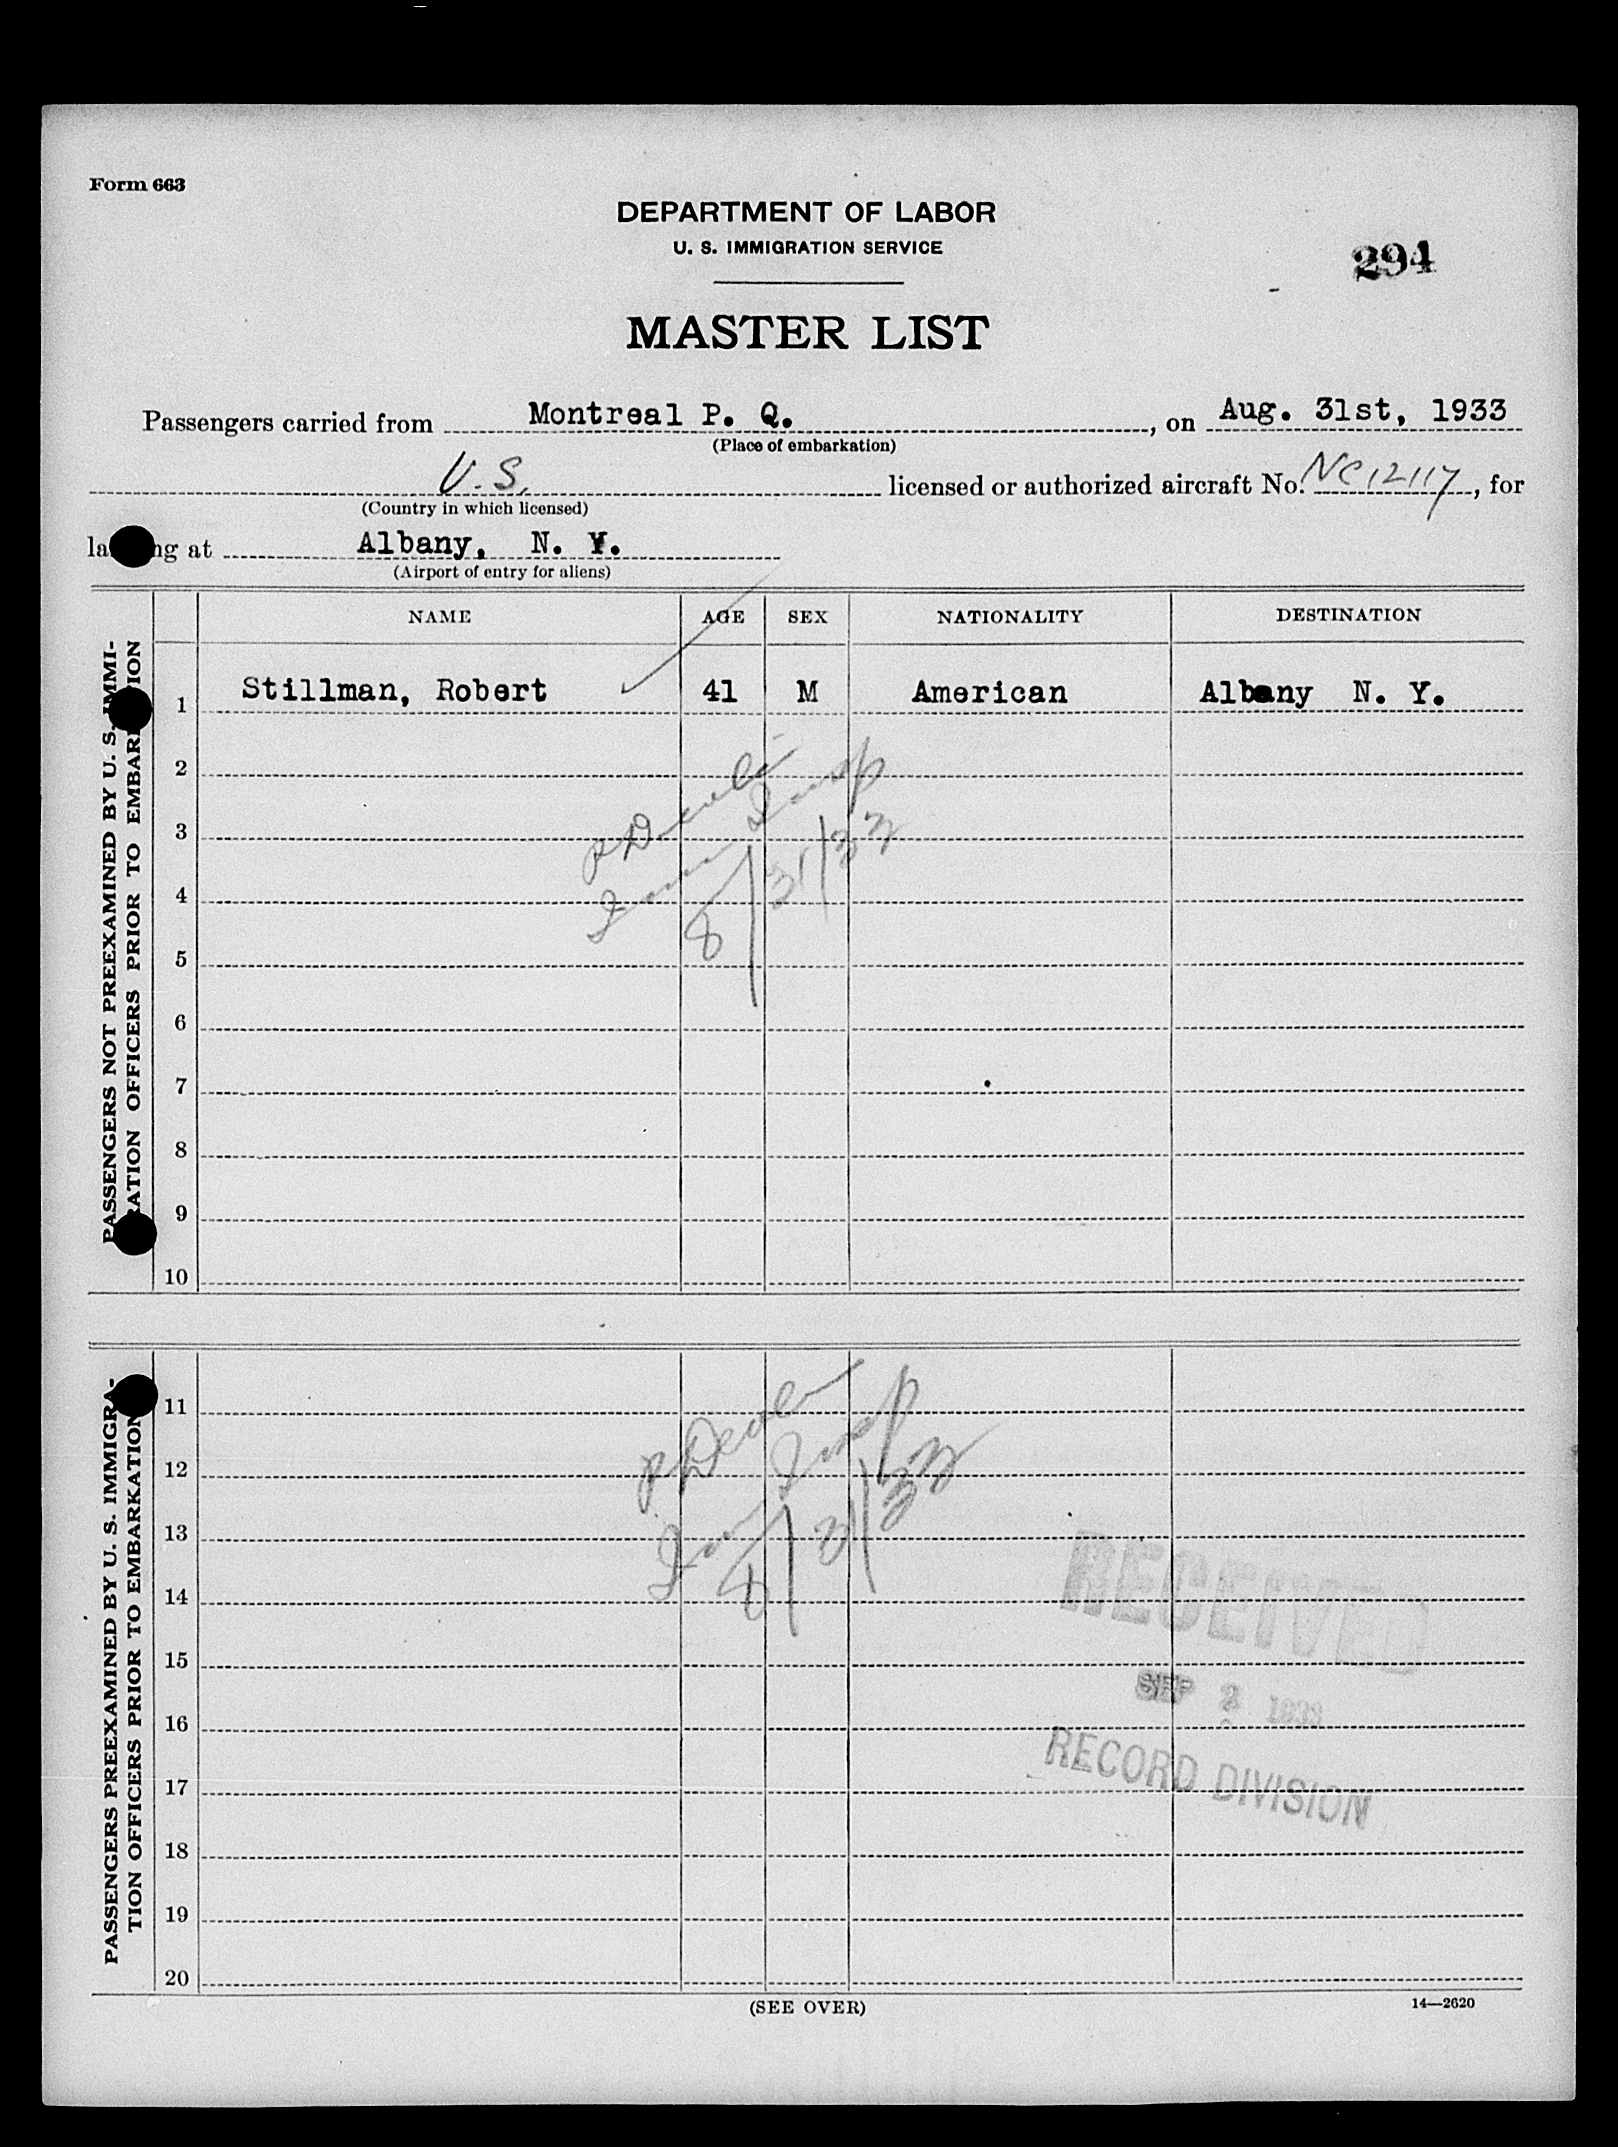 Form 663
DEPARTMENT OF LABOR
U. S. IMMIGRATION SERVICE
294
MASTER LIST
Passengers carried from Montreal P. Q., on Aug. 31st, 1933
(Place of embarkation)
U.S. licensed or authorized aircraft No. NC12117, for
(Country in which licensed)
la ng at Albany, N. Y.
(Airport of entry for aliens)
NAME AGE SEX NATIONALITY DESTINATION
PASSENGERS NOT PREEXAMINED BY U. S. IMMI-
RATION OFFICERS PRIOR TO EMBAR ION
1 Stillman, Robert 41 M American Albany N. Y.
2
3
4
5
6
7
8
9
10
Insp
8/31/33
PASSENGERS PREEXAMINED BY U. S. IMMIGRA-
TION OFFICERS PRIOR TO EMBARKATION
11
12
13
14
15
16
17
18
19
20
Insp
8/31/33
RECEIVED
SEP 2 1933
RECORD DIVISION
(SEE OVER)
14—2620